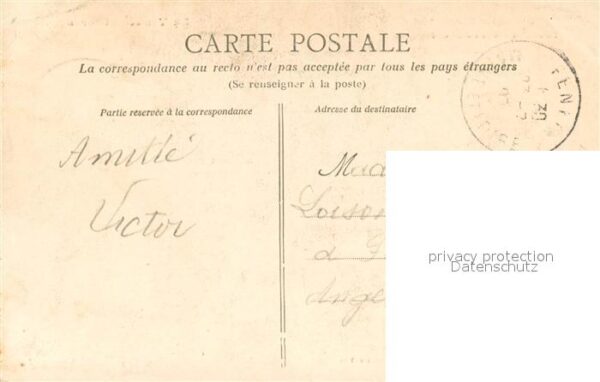 CARTE POSTALE
La correspondance au recto n'est pas acceptée par tous les pays étrangers
(Se renseigner à la poste)
Partie réservée à la correspondance
Adresse du destinataire
Amitié
Victor
Mad
Loison
à
Ange
privacy protection
Datenschutz